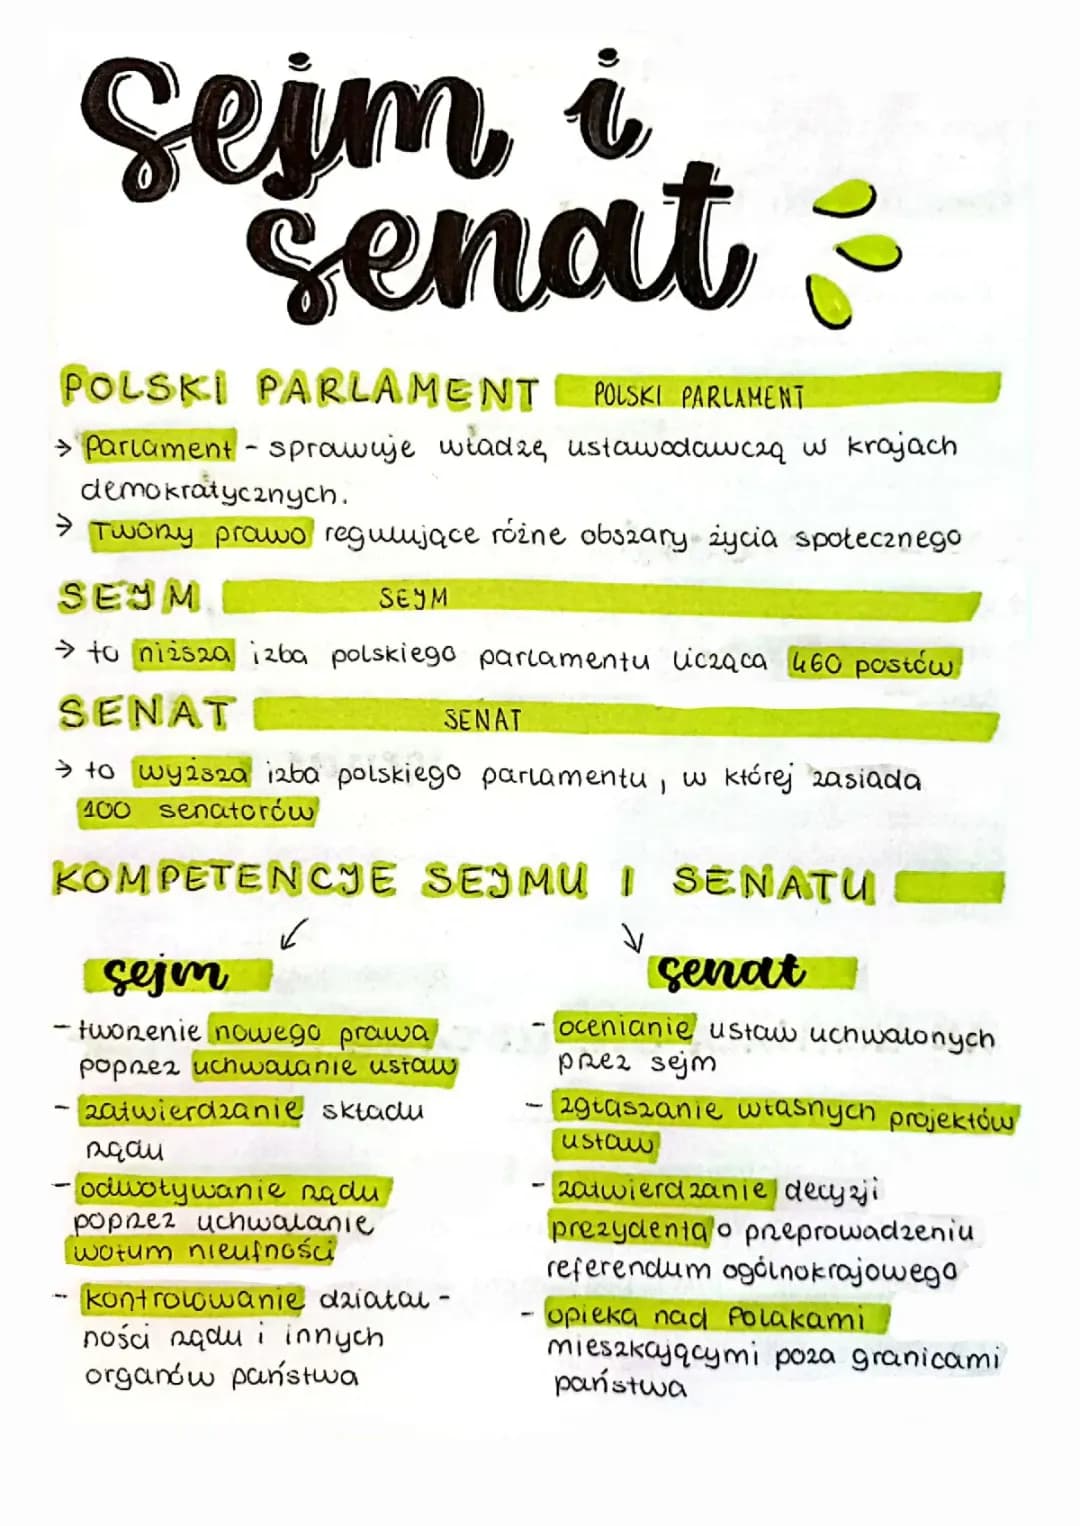 sejm i
senat
POLSKI PARLAMENT POLSKI PARLAMENT
→ Parlament - sprawuje władzę ustawodawczą w krajach
demokratycznych.
→ Tworzy prawo regulujące różne obszary życia społecznego
SEJM SEJM
→ to niższa izba polskiego parlamentu licząca 460 posłów
SENAT SENAT
→ to wyższa izba polskiego parlamentu, w której zasiada
100 senatorów
KOMPETENCJE SEJMU I SENATU
sejm
- tworzenie nowego prawa
poprzez uchwalanie ustaw
- zatwierdzanie składu
rządu
- odwoływanie rządu
poprzez uchwalanie
wotum nieufności
- kontrolowanie działal-
ności rządu i innych
organów państwa
senat
- ocenianie ustaw uchwalonych
przez sejm
- zgłaszanie własnych projektów
ustaw
- zatwierdzanie decyzji
prezydenta o przeprowadzeniu
referendum ogólnokrajowego
- opieka nad Polakami
mieszkającymi poza granicami
państwa